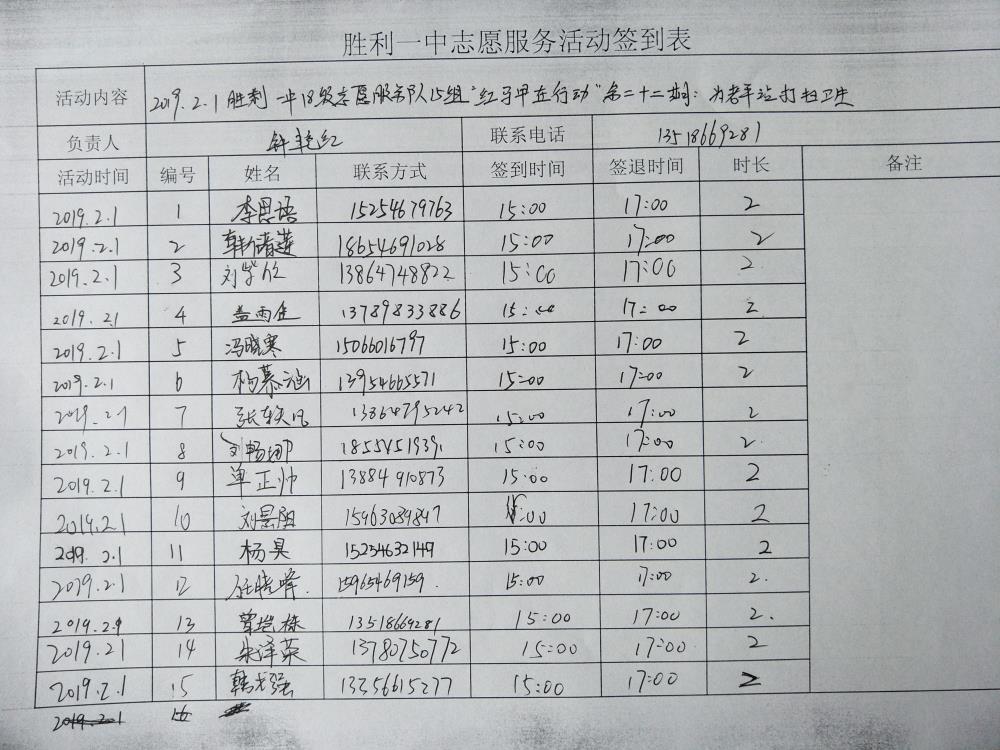 胜利一中志愿服务活动签到表
活动内容 2019.2.1胜利一中18级志愿服务队15组"红马甲在行动"第二十二期:为老年站打扫卫生
负责人 联系电话 13518669281
活动时间 编号 姓名 联系方式 签到时间 签退时间 时长 备注
2019.2.1 1 李思语 15254679763 15:00 17:00 2
2019.2.1 2 韩倩莲 18654691028 15:00 17:00 2
2019.2.1 3 刘学欣 13864748822 15:00 17:00 2
2019.2.1 4 盖雨佳 13789833886 15:00 17:00 2
2019.2.1 5 冯晓寒 15066016797 15:00 17:00 2
2019.2.1 6 杨慕涵 13954665571 15:00 17:00 2
2019.2.1 7 张轶凡 13864795242 15:00 17:00 2
2019.2.1 8 刘畅娜 18554519391 15:00 17:00 2
2019.2.1 9 单正帅 13884910873 15:00 17:00 2
2019.2.1 10 刘景阳 15963089847 15:00 17:00 2
2019.2.1 11 杨昊 15254632149 15:00 17:00 2
2019.2.1 12 任晓峰 15965469159 15:00 17:00 2
2019.2.1 13 13518669281 15:00 17:00 2
2019.2.1 14 朱泽荣 13780750772 15:00 17:00 2
2019.2.1 15 韩戈强 13356615277 15:00 17:00 2
2019.2.1 16